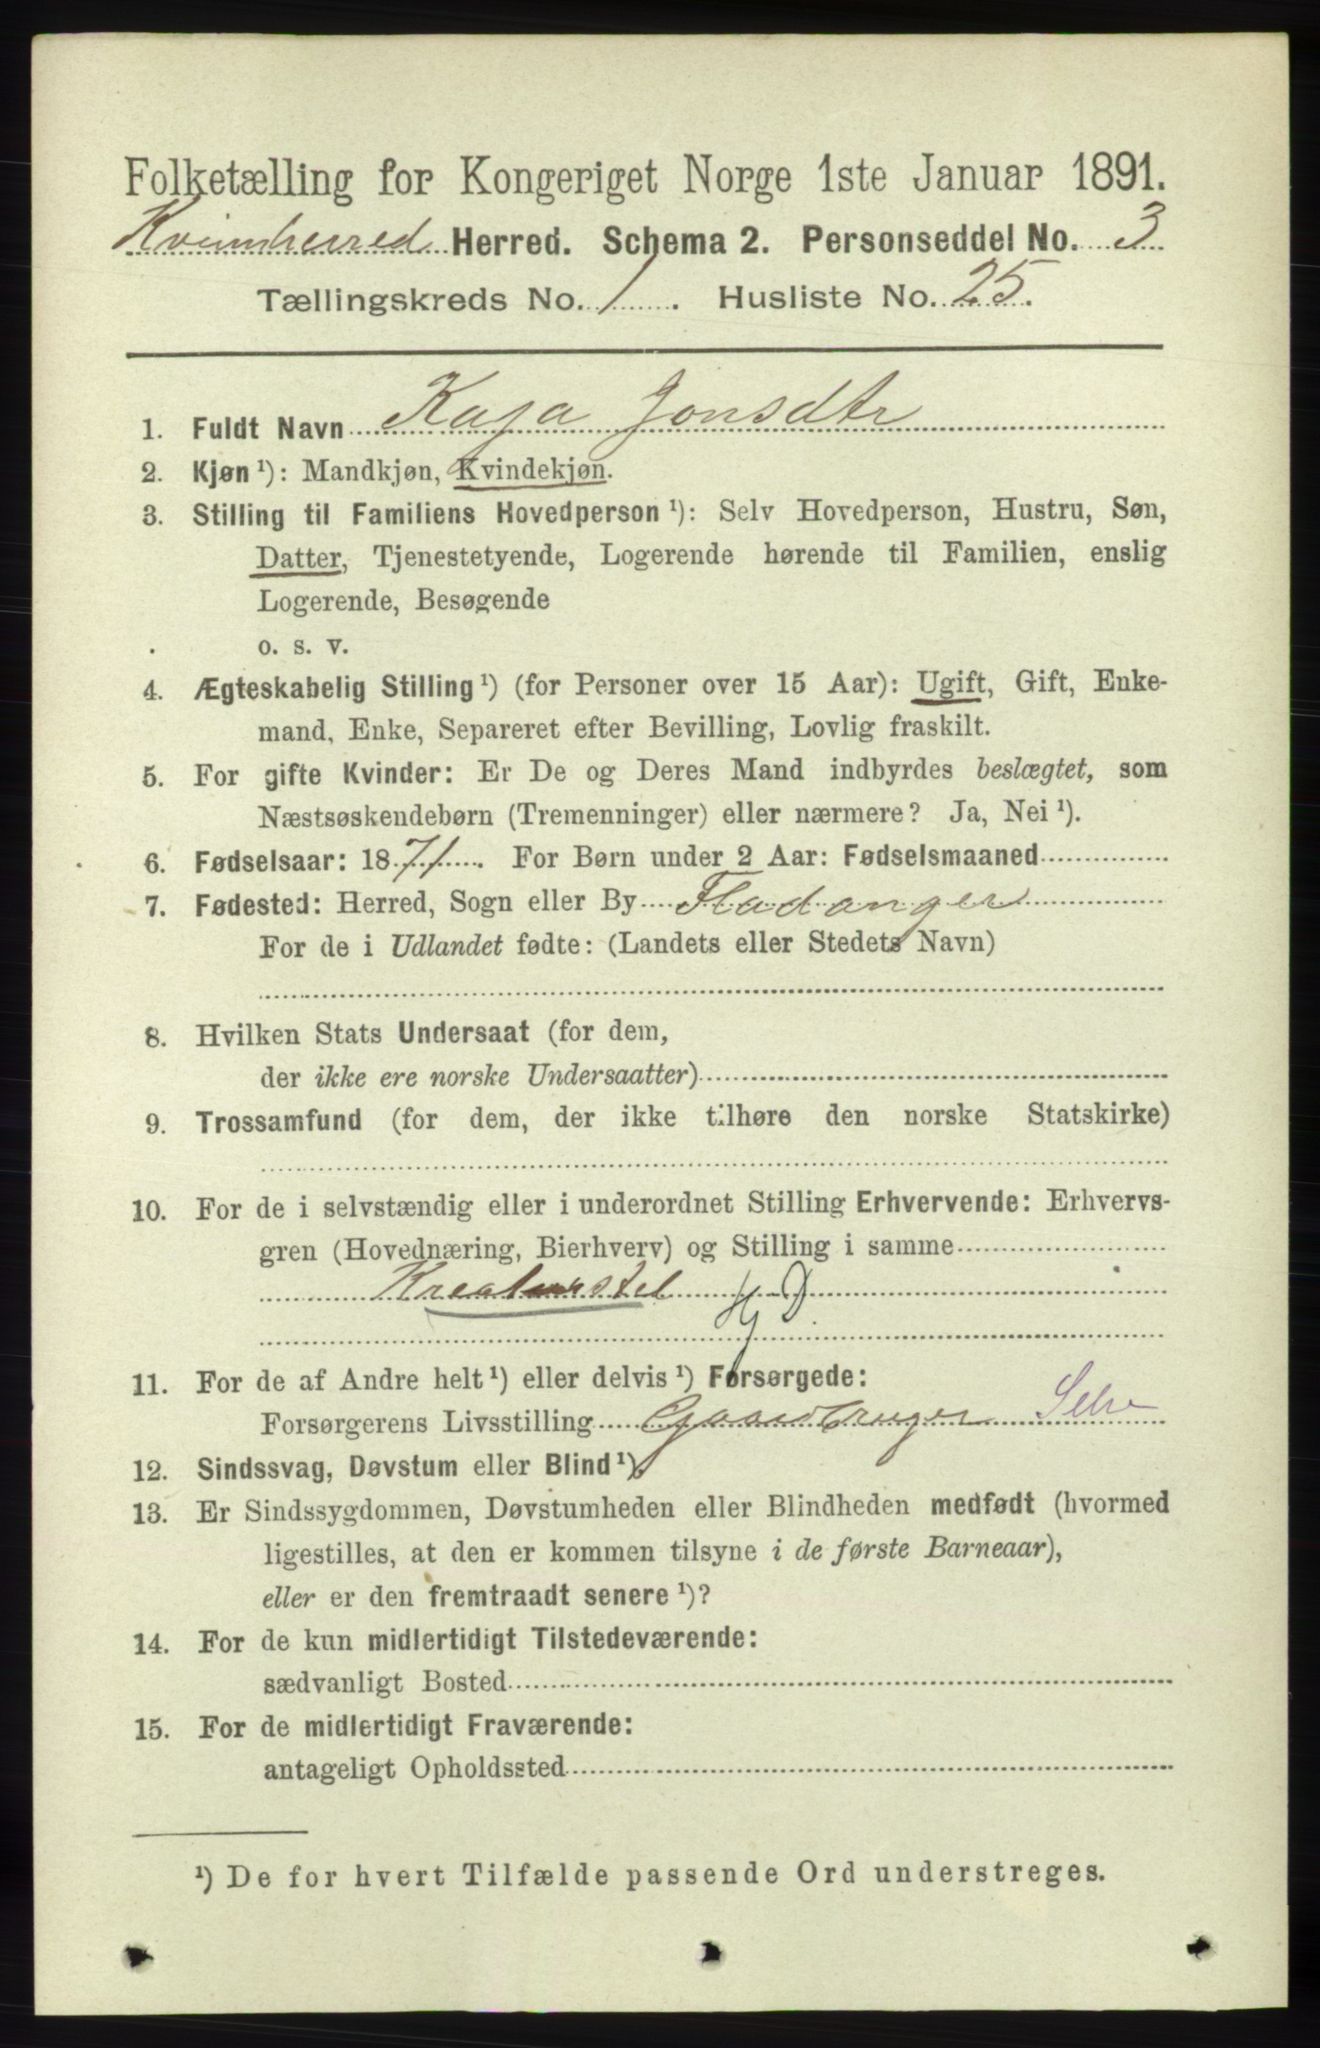 Folketælling for Kongeriget Norge 1ste Januar 1891.
Kvinnherred Herred. Schema 2. Personseddel No. 3
Tællingskreds No. 1. Husliste No. 25.
1. Fuldt Navn Kaja Jonsdtr
2. Kjøn ¹): Mandkjøn, Kvindekjøn.
3. Stilling til Familiens Hovedperson ¹): Selv Hovedperson, Hustru, Søn,
Datter, Tjenestetyende, Logerende hørende til Familien, enslig
Logerende, Besøgende
o. s. v.
4. Ægteskabelig Stilling ¹) (for Personer over 15 Aar): Ugift, Gift, Enke-
mand, Enke, Separeret efter Bevilling, Lovlig fraskilt.
5. For gifte Kvinder: Er De og Deres Mand indbyrdes beslægtet, som
Næstsøskendebørn (Tremenninger) eller nærmere? Ja, Nei ¹).
6. Fødselsaar: 1871. For Børn under 2 Aar: Fødselsmaaned
7. Fødested: Herred, Sogn eller By Fladanger
For de i Udlandet fødte: (Landets eller Stedets Navn)
8. Hvilken Stats Undersaat (for dem,
der ikke ere norske Undersaatter)
9. Trossamfund (for dem, der ikke tilhøre den norske Statskirke)
10. For de i selvstændig eller i underordnet Stilling Erhvervende: Erhvervs-
gren (Hovednæring, Bierhverv) og Stilling i samme
Kreaturstel HD
11. For de af Andre helt ¹) eller delvis ¹) Forsørgede:
Forsørgerens Livsstilling Gaardbruger Selve
12. Sindssvag, Døvstum eller Blind ¹).
13. Er Sindssygdommen, Døvstumheden eller Blindheden medfødt (hvormed
ligestilles, at den er kommen tilsyne i de første Barneaar),
eller er den fremtraadt senere ¹)?
14. For de kun midlertidigt Tilstedeværende:
sædvanligt Bosted
15. For de midlertidigt Fraværende:
antageligt Opholdssted
¹) De for hvert Tilfælde passende Ord understreges.